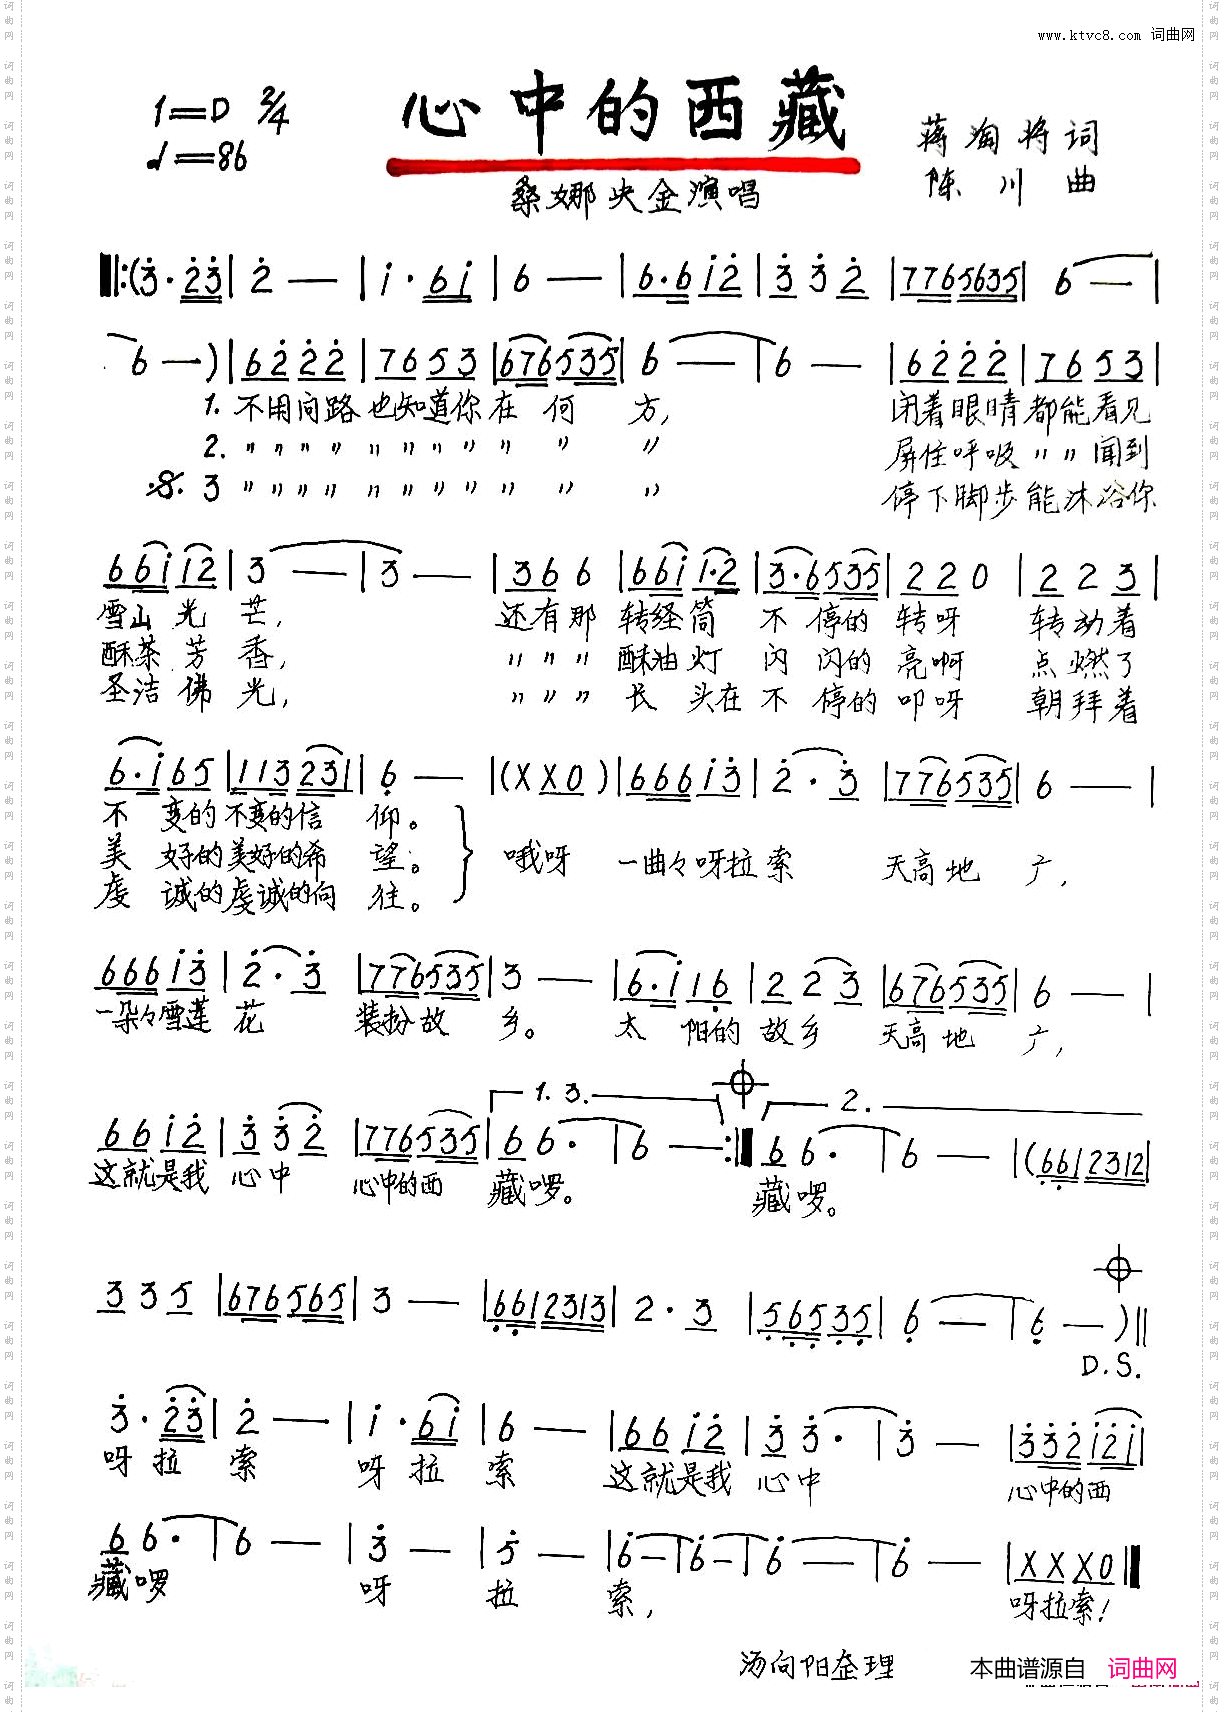 www.ktvc8.com 词曲网
心中的西藏
1=D 2/4
♩=86
蒋淘将词
陈川曲
桑娜央金演唱
‖:(3·23|2—|1·61|6—|6·612|332|7765635|6—|
6—)|6222|7653|676535|6—|6—|6222|7653|
1. 不用问路也知道你在何方, 闭着眼睛都能看见
2. 〃〃〃〃〃〃〃〃〃〃〃 屏住呼吸〃〃闻到
3 〃〃〃〃〃〃〃〃〃〃〃 停下脚步能沐浴你
66112|3—|3—|366|6611·2|3·6535|220|223|
雪山光芒, 还有那转经筒不停的转呀转动着
酥茶芳香, 〃〃〃酥油灯闪闪的亮啊点燃了
圣洁佛光, 〃〃〃长头在不停的叩呀朝拜着
6·165|113231|6—|(XX0)|66613|2·3|776535|6—|
不变的不变的信仰。
美好的美好的希望。 哦呀一曲々呀拉索天高地广,
虔诚的虔诚的向往。
66613|2·3|776535|3—|6·116|223|676535|6—|
一朵々雪莲花装扮故乡。太阳的故乡天高地广,
1. 3. 2.
6612|332|776535|66·|6—:‖66·|6—|(6612312|
这就是我心中心中的西藏啰。 藏啰。
335|676565|3—|6612313|2·3|56535|6—|6—)‖
D.S.
3·23|2—|1·61|6—|6612|33·|3—|332121|
呀拉索呀拉索这就是我心中心中的西
66·|6—|3—|5—|6—|6—|6—|6—|XXX0‖
藏啰呀拉索, 呀拉索!
汤向阳整理
本曲谱源自 词曲网